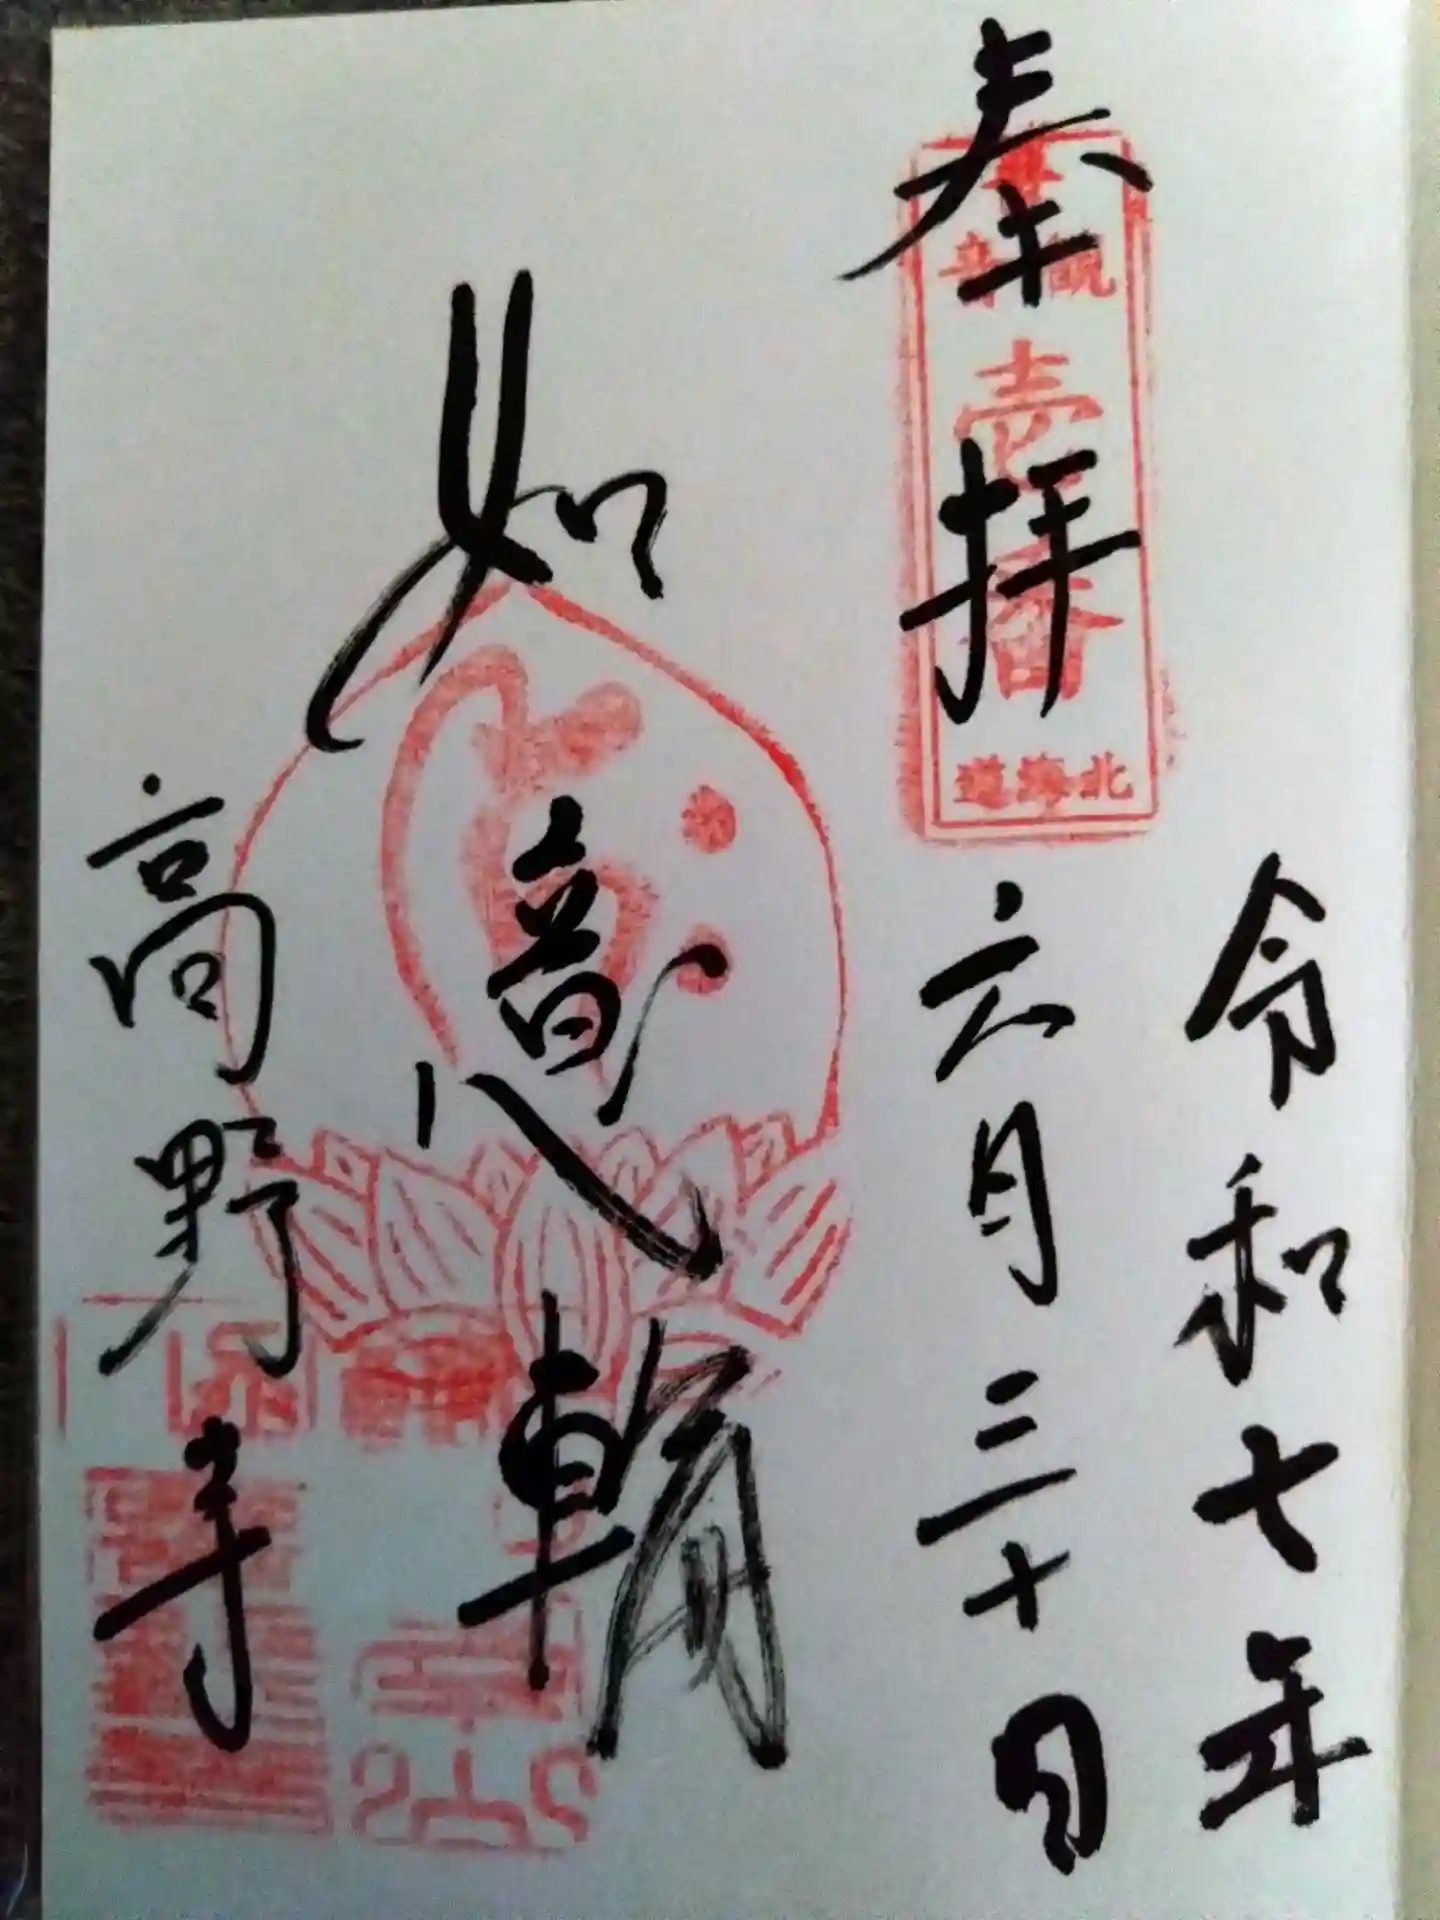 令和七年
奉拝
六月三十日
壱番
北海道
如意輪
高野寺